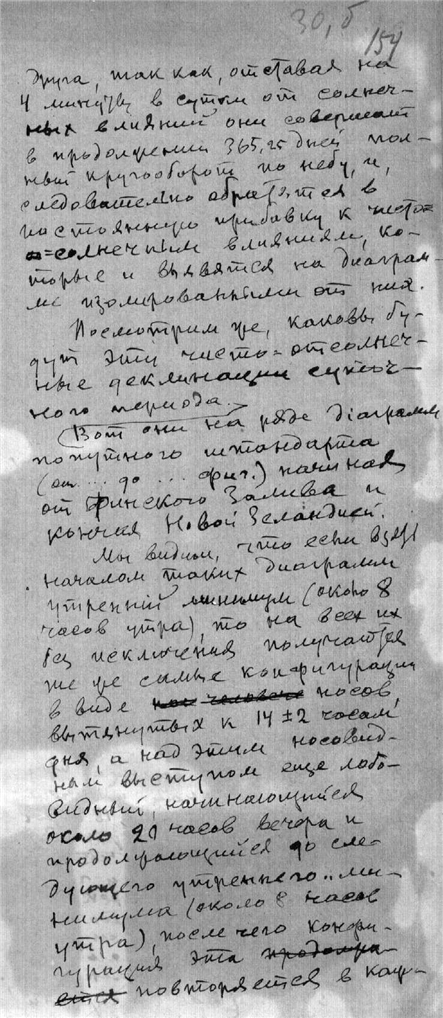 30, б
154
друга, так как, отставая на
4 минуты в сутки от солнеч-
ных влияний они совершают
в продолжении 365,25 дней пол-
ный кругооборот по небу, и,
следовательно обратятся в
постоянную прибавку к чисто=
=солнечным влияниям, ко-
торые и выявятся на диаграм-
ме изолированными от них.
Посмотрим же, каковы бу-
дут эти чисто=отсолнеч-
ные деклинации суточ-
ного периода.
Вот они на ряде диаграмм
попутного штандарта
(от ... до ... фиг.) начиная
от Финского Залива и
кончая Новой Зеландией.
Мы видим, что если взять
началом таких диаграмм
утренний минимум (около 8
часов утра), то на всех их
без исключения получаются
же самые конфигурации
в виде носов,
вытянутых к 14 ± 2 часам
дня, а над этим носовид-
ным выступом еще лобо-
видный, начинающийся
около 20 часов вечера и
продолжающийся до сле-
дующего утреннего ми-
нимума (около 8 часов
утра), после чего конфи-
гурация эта продолжа-
ется повторяется в каж-